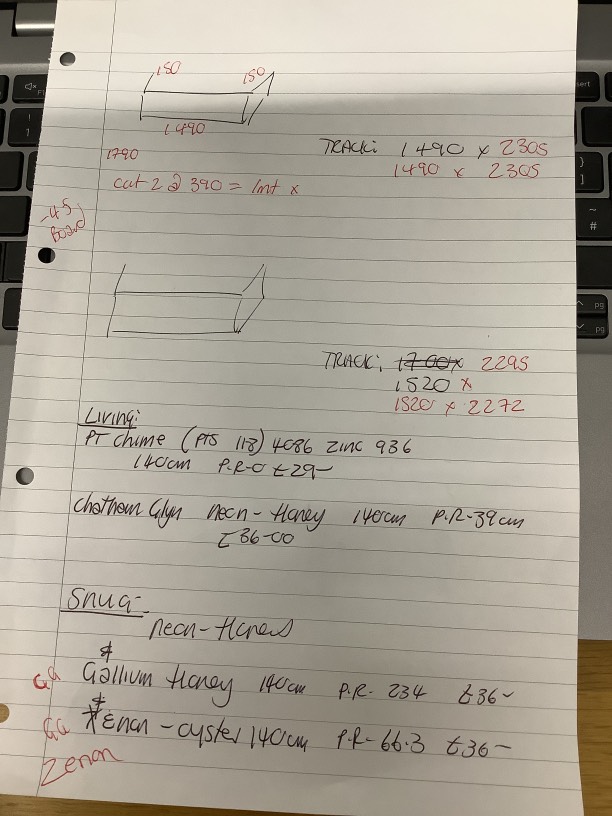 150 150
1490
TRACK: 1490 x 2305
1490 x 2305
1790
cut 2 @ 390 = Int x
-45
Board
TRACK: 1700x 2295
1520 x
1520 x 2272
Living:
PT chime (PTS 113) 4086 zinc 936
140cm P.R-0 £29-
Chatham Glyn neon-Honey 140cm P.R-39cm
£36-00
Snug-
neon-Honey
GG Gallium Honey 140cm P.R- 234 £36-
GG Xenon - oyster 140cm P.R-66.3 £36-
Zenon